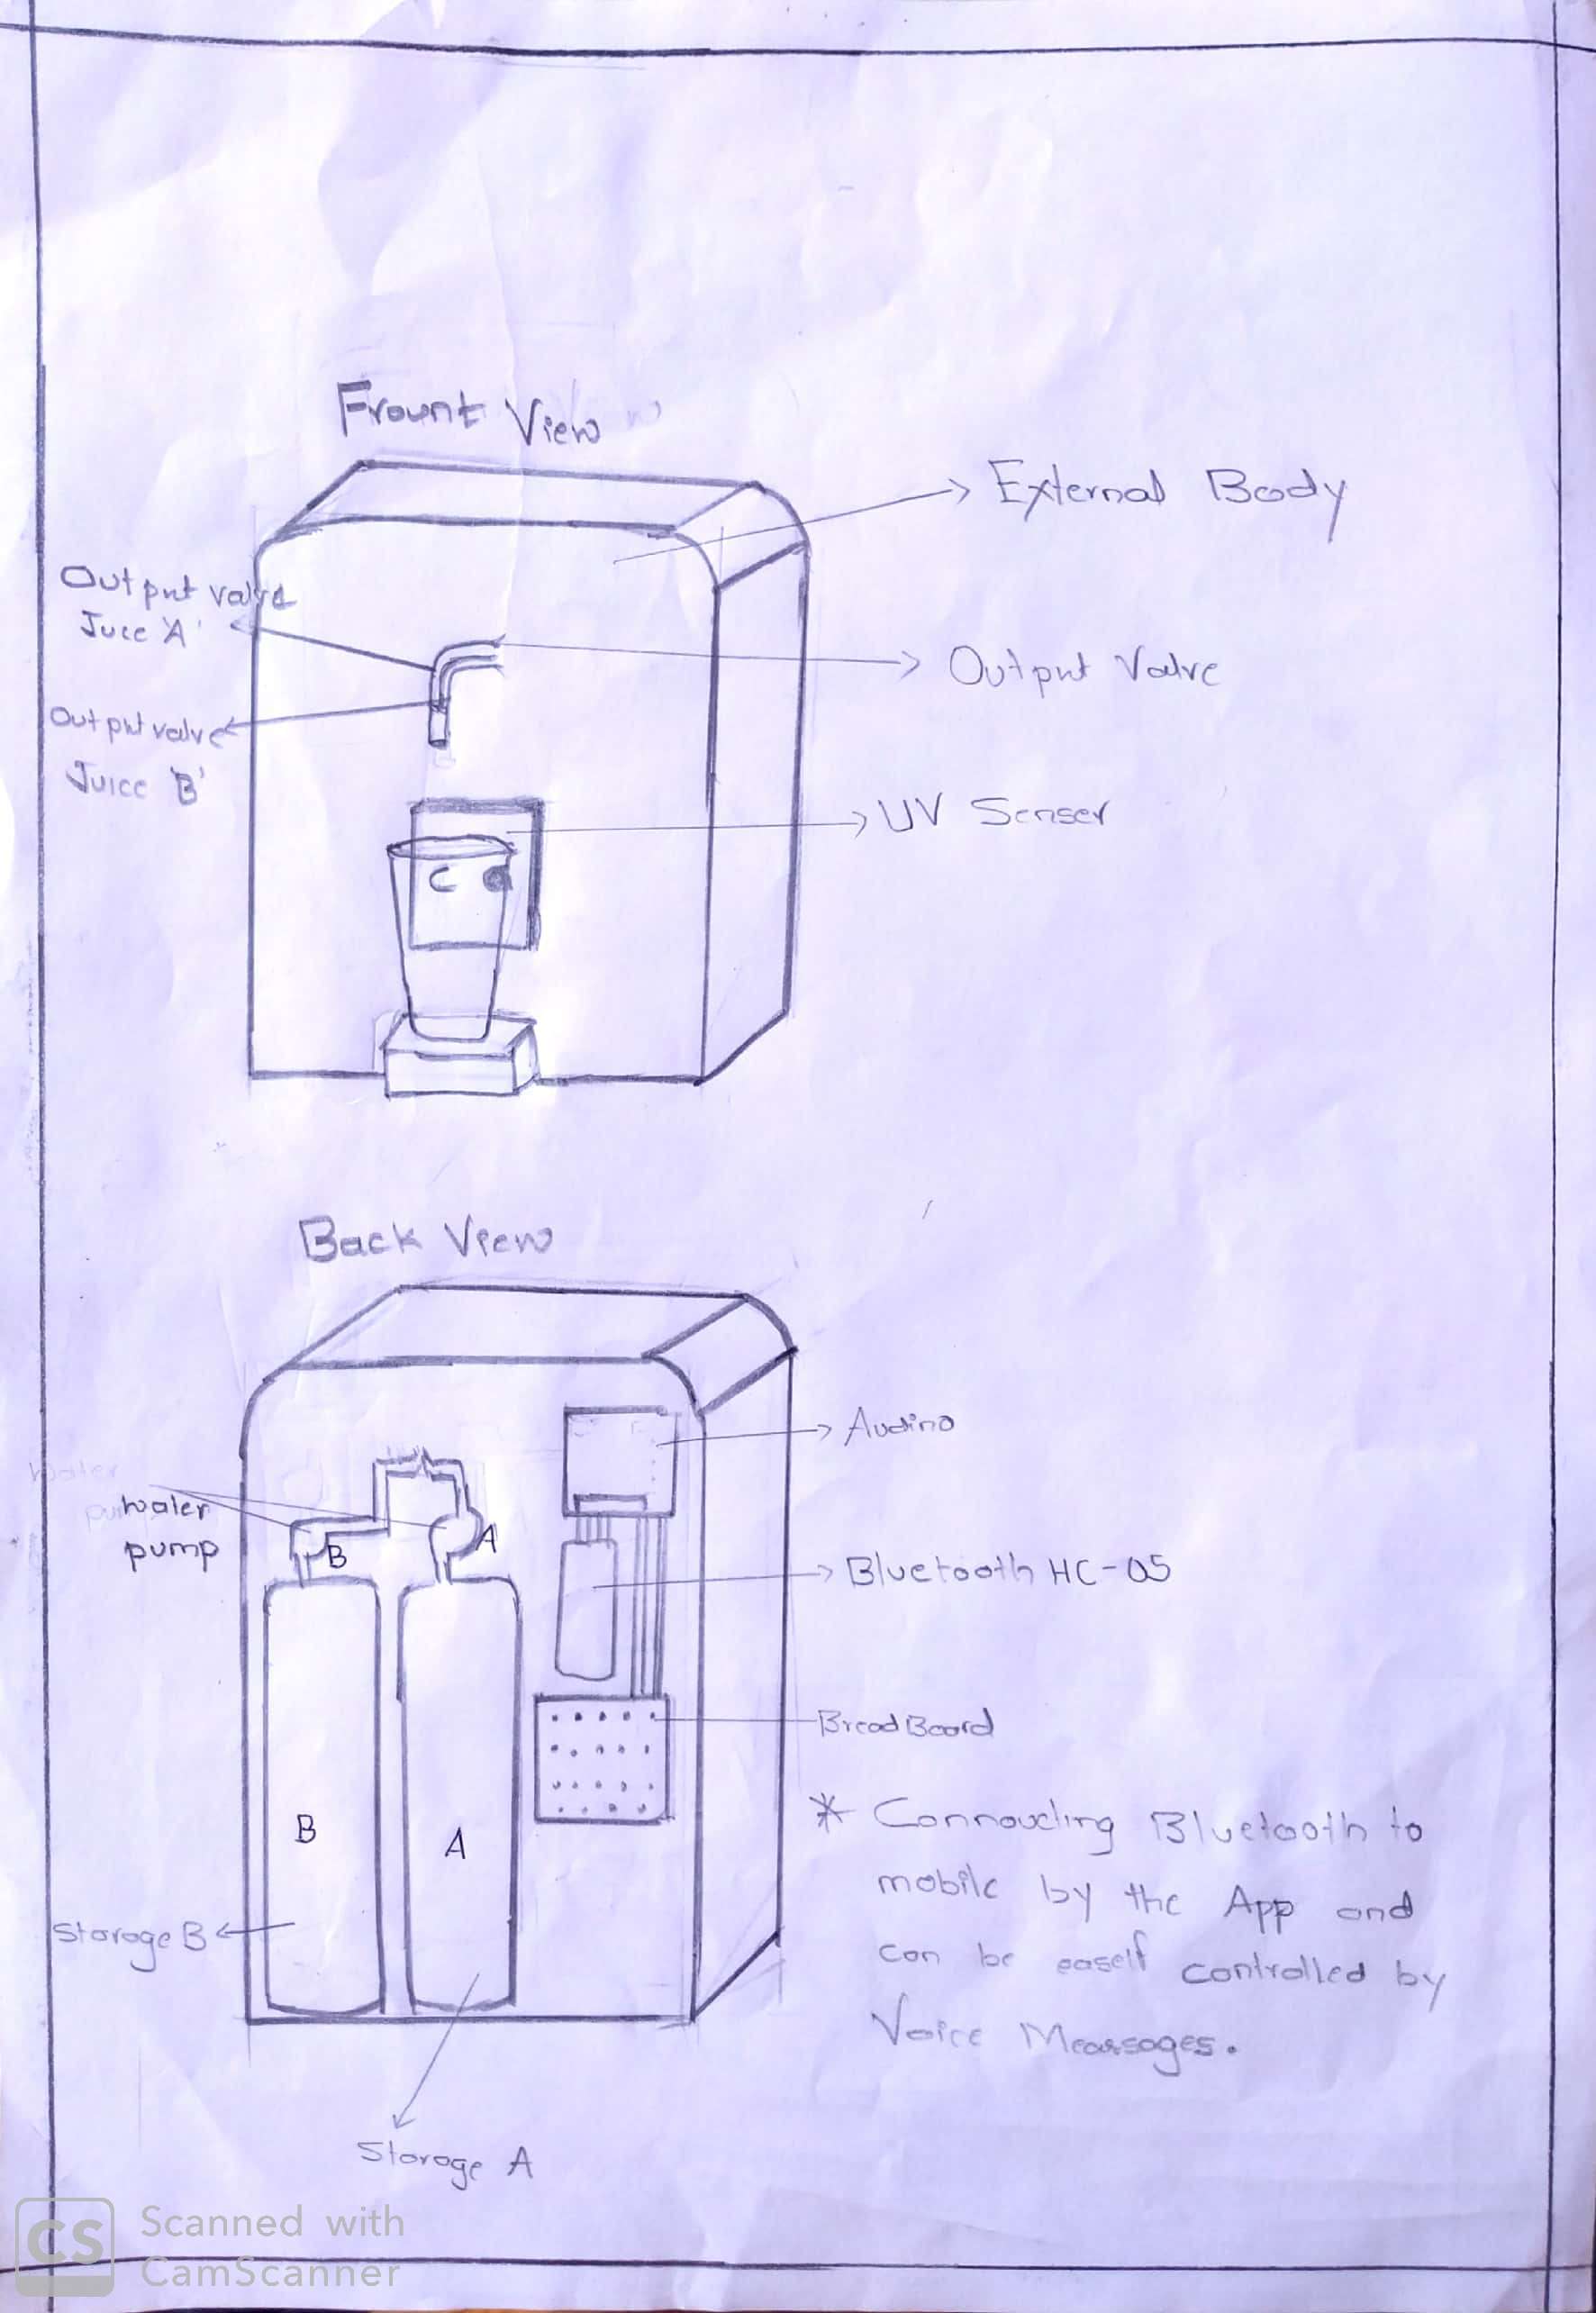 Frount View
External Body
Output valve
Juce 'A'
Output Valve
Output valve
Juice 'B'
UV Senser
Back View
Audino
Water
pump
B
A
Bluetooth HC-05
BreadBoard
B
A
* Connoucting Bluetooth to
mobile by the App and
can be eaself controlled by
Voice Meassages.
Storage B
Storage A
CS
Scanned with
CamScanner